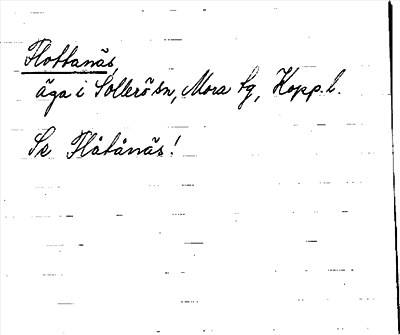 Flottanäs,
äga i Sollerö sn, Mora tg, Kopp. l.
Se Flåtånäs!